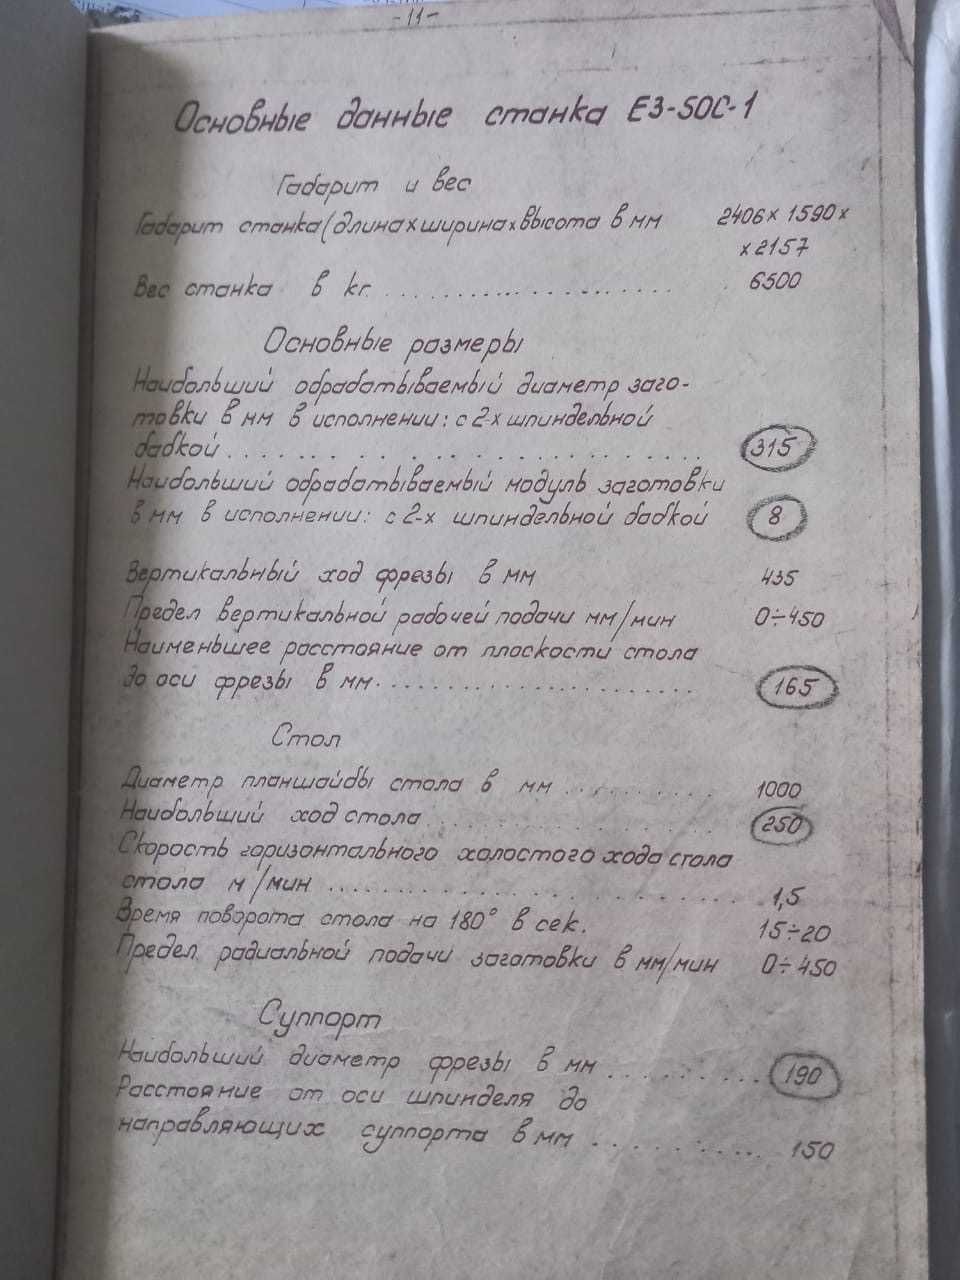 -11-
Основные данные станка ЕЗ-50С-1
Габарит и вес
Габарит станка (длина х ширина х высота в мм 2406 х 1590 х
х 2157
Вес станка в кг. 6500
Основные размеры
Наибольший обрабатываемый диаметр заго-
товки в мм в исполнении: с 2-х шпиндельной
бабкой 315
Наибольший обрабатываемый модуль заготовки
в мм в исполнении: с 2-х шпиндельной бабкой 8
Вертикальный ход фрезы в мм 435
Предел вертикальной рабочей подачи мм/мин 0÷450
Наименьшее расстояние от плоскости стола
до оси фрезы в мм. 165
Стол
Диаметр планшайбы стола в мм 1000
Наибольший ход стола 250
Скорость горизонтального холостого хода стола
стола м/мин 1,5
Время поворота стола на 180° в сек. 15÷20
Предел радиальной подачи заготовки в мм/мин 0÷450
Суппорт
Наибольший диаметр фрезы в мм 190
Расстояние от оси шпинделя до
направляющих суппорта в мм 150